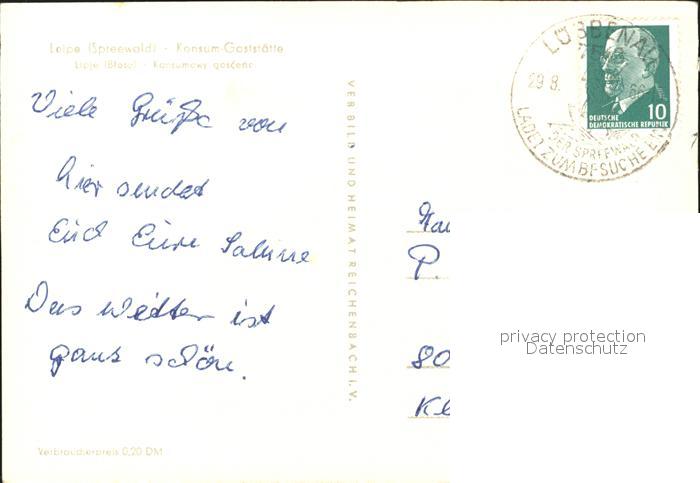 Leipe (Spreewald) - Konsum-Gaststätte
Lipje (Błota) - Konsumowy gosćenc
Viele Grüße von
hier sendet
Euch Eure Sabine
Das Wetter ist
ganz schön.
Verbraucherpreis 0,20 DM
VEB BILD UND HEIMAT REICHENBACH I. V.
LÜBBENAU
29.8.
DER SPREEWALD
LADET ZUM BESUCHE EIN
10
DEUTSCHE
DEMOKRATISCHE REPUBLIK
P.
80
Kl
privacy protection
Datenschutz